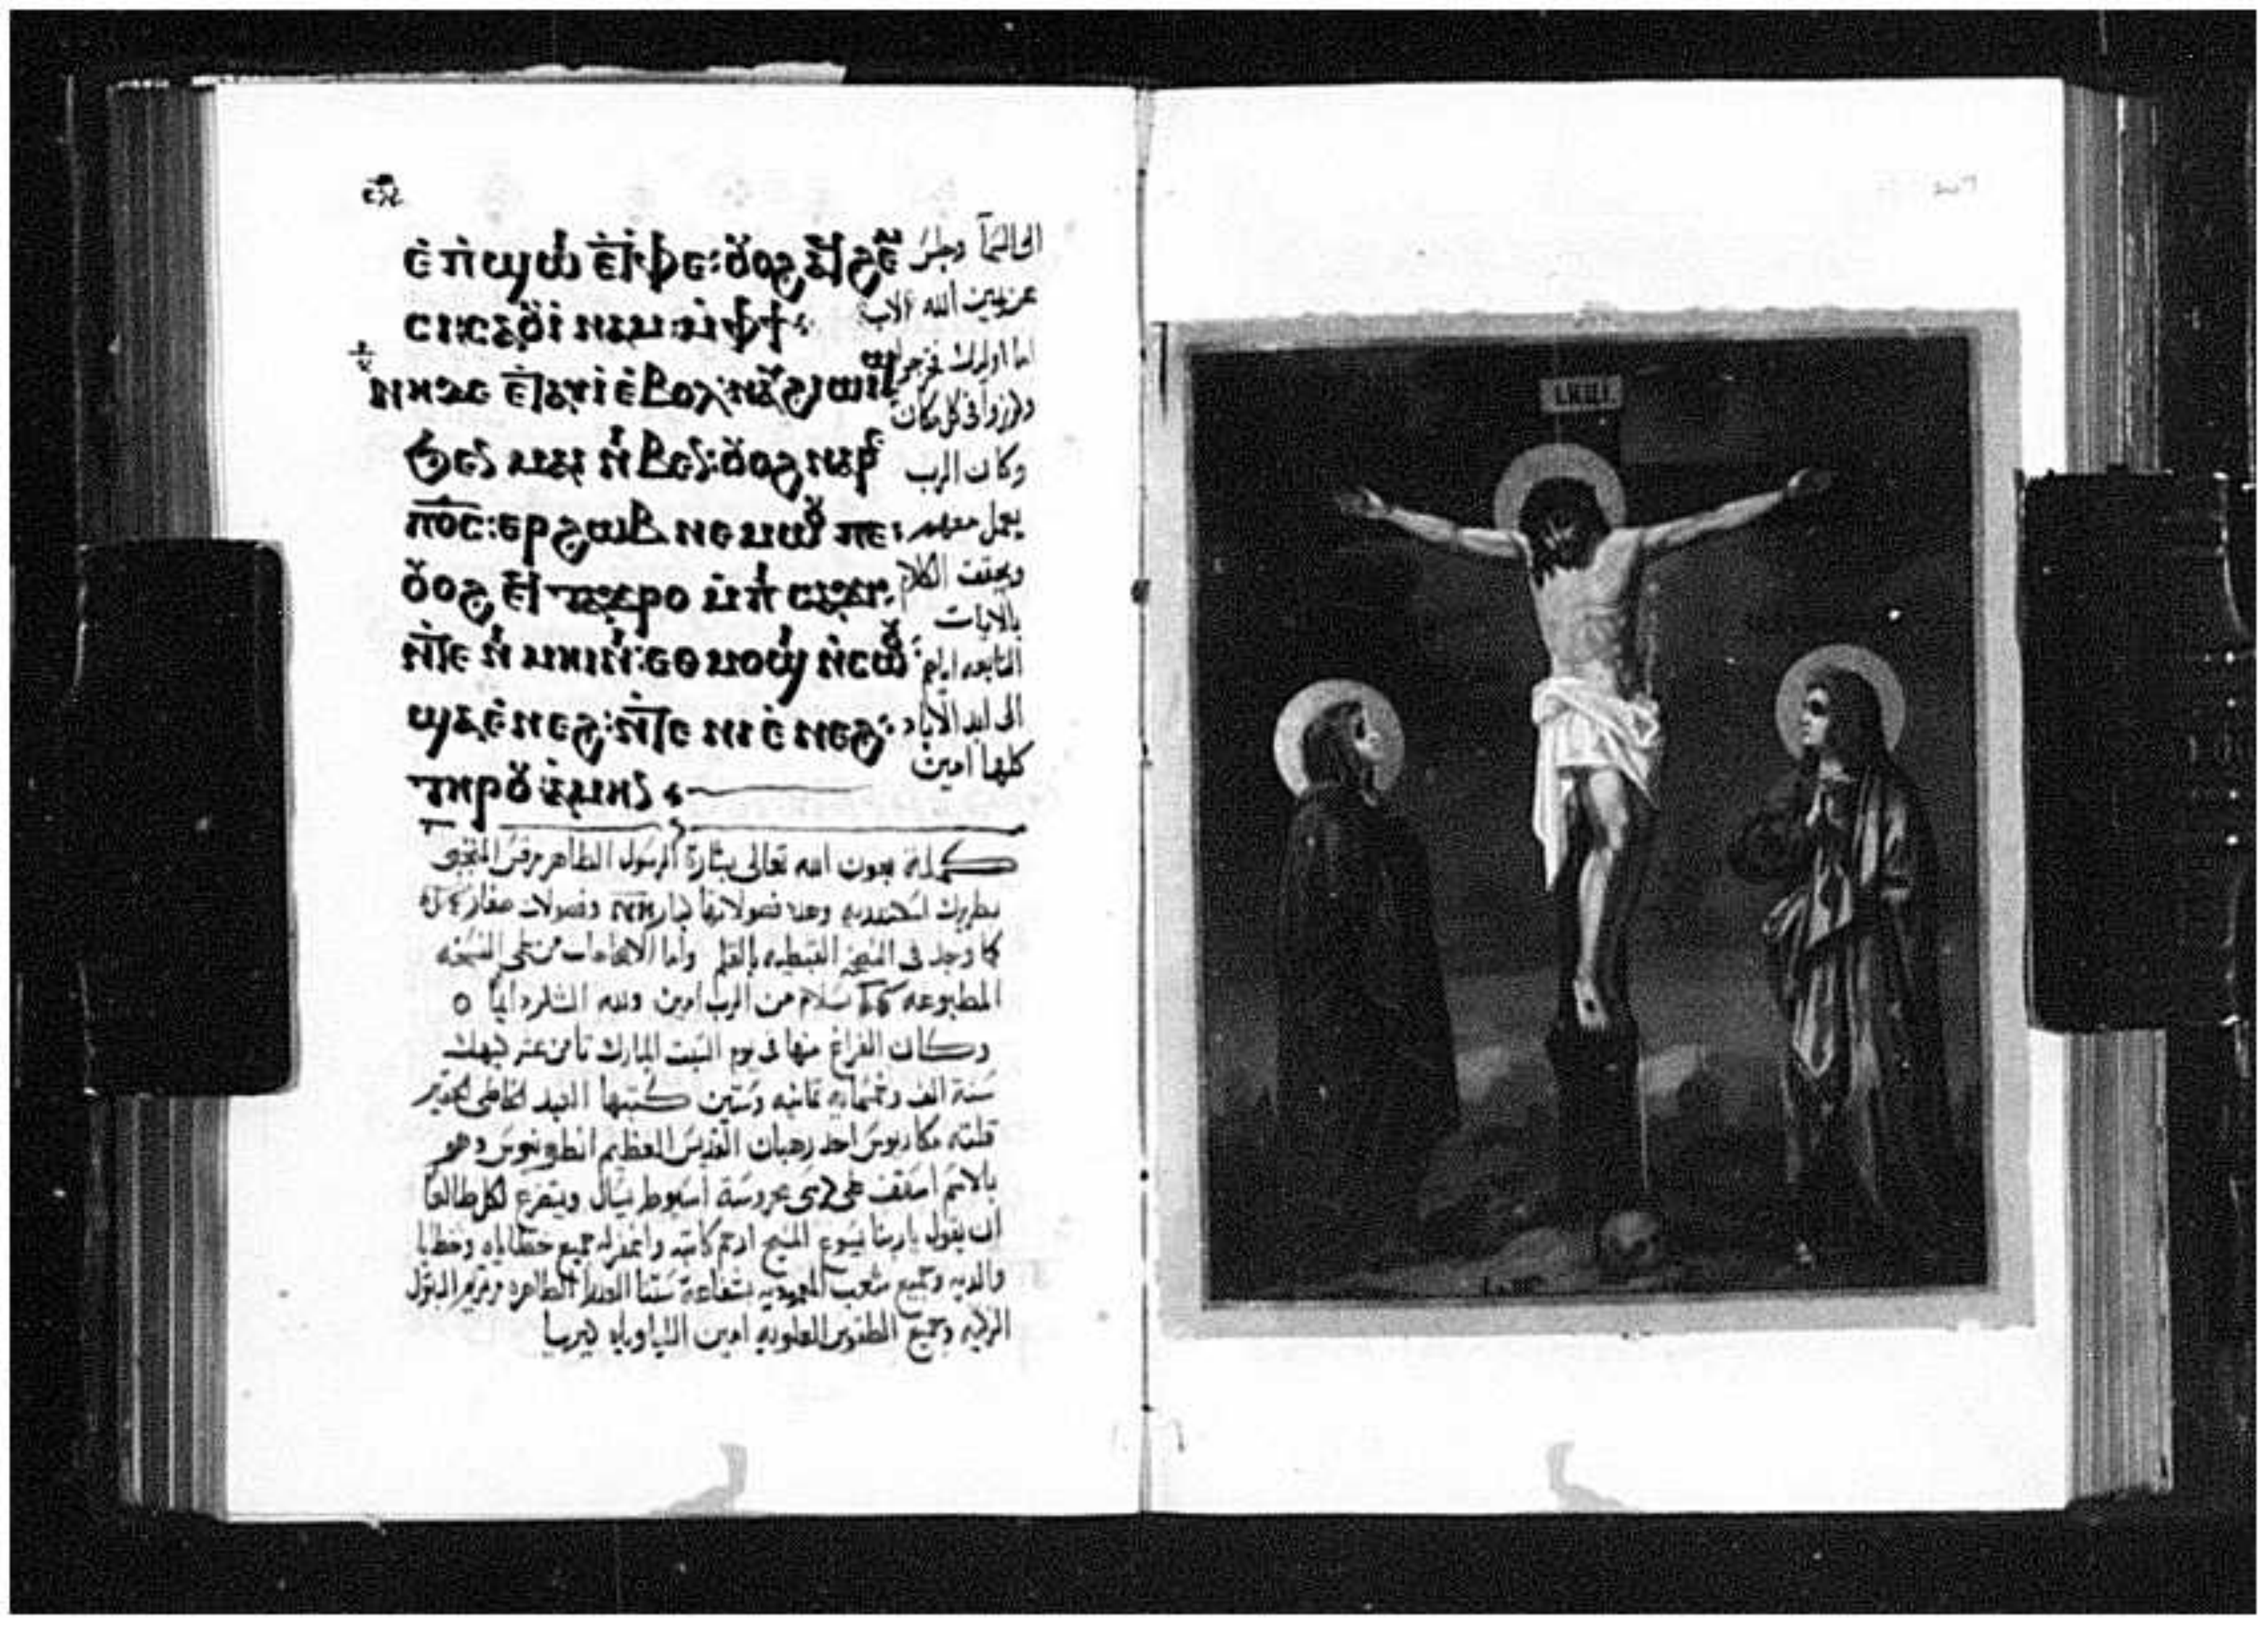 ⲉ̀ⲡ̀ϣⲱⲓ ⲉ̀ⲧ̀ⲫⲉ: ⲟⲩⲟϩ ⲁϥϩⲉⲙ
ⲥⲓ: ⲥⲁⲟⲩⲓ̀ⲛⲁⲙ: ⲙ̀ⲫϯ
ⲛⲏ ⲇⲉ ⲉ̀ⲧⲁⲩⲓ̀ ⲉ̀ⲃⲟⲗ: ⲁⲩϩⲓⲱⲓϣ
ϧⲉⲛ ⲙⲁⲓ ⲛ̀ⲃⲉⲛ: ⲟⲩⲟϩ ⲛⲁⲣⲉ
ⲡⲟ̅ⲥ̅: ⲉⲣϩⲱⲃ ⲛⲉⲙⲱⲟⲩ ⲡⲉ:
ⲟⲩⲟϩ ⲉϥⲧⲁϫⲣⲟ ⲙ̀ⲡ̀ⲥⲁϫⲓ
ⲛ̀ⲧⲉ ⲛⲓⲙⲏⲓⲛⲓ: ⲉⲑⲙⲟϣⲓ ⲛ̀ⲥⲱⲟⲩ:
ϣⲁ ⲉ̀ⲛⲉϩ: ⲛ̀ⲧⲉ ⲛⲓⲉ̀ⲛⲉϩ:
ⲧⲏⲣⲟⲩ ⲁ̀ⲙⲏⲛ
الى السما وجلس
عن يمين الله الاب
اما اوليك فخرجوا
وكرزوا في كل مكان
وكان الرب
يعمل معهم
ويحقق الكلام
بالايات
التابعه اياهم
الى ابد الاباد
كلها امين
كملت بعون الله تعالى بشارة الرسول الطاهر مرقس
بطريرك اسكندريه وعدد فصولاتها كبار وفصولات صغار
كما وجد في النسخ القبطيه بالقلم واما الاصحاحات من على النسخه
المطبوعه سلام من الرب امين ولله الشكر دايما
وكان الفراغ منها في يوم السبت المبارك ثامن عشر كيهك
سنة الف وخمسمايه ثمانيه وستين كتبها العبد الخاطى الحقير
مكاريوس احد رهبان القديس العظيم انطونيوس وهو
بالاسم اسقف على كرسى محروسة اسيوط يسال ويتضرع لكل
ان يقول يا ربنا يسوع المسيح ارحم كاتبه واغفر له جميع خطاياه وخطايا
والديه وجميع شعب المعموديه بشفاعة ستنا العدرا الطاهره مرتمريم البتول
الزكيه وجميع الطقوس العلويه امين
I.N.R.I.